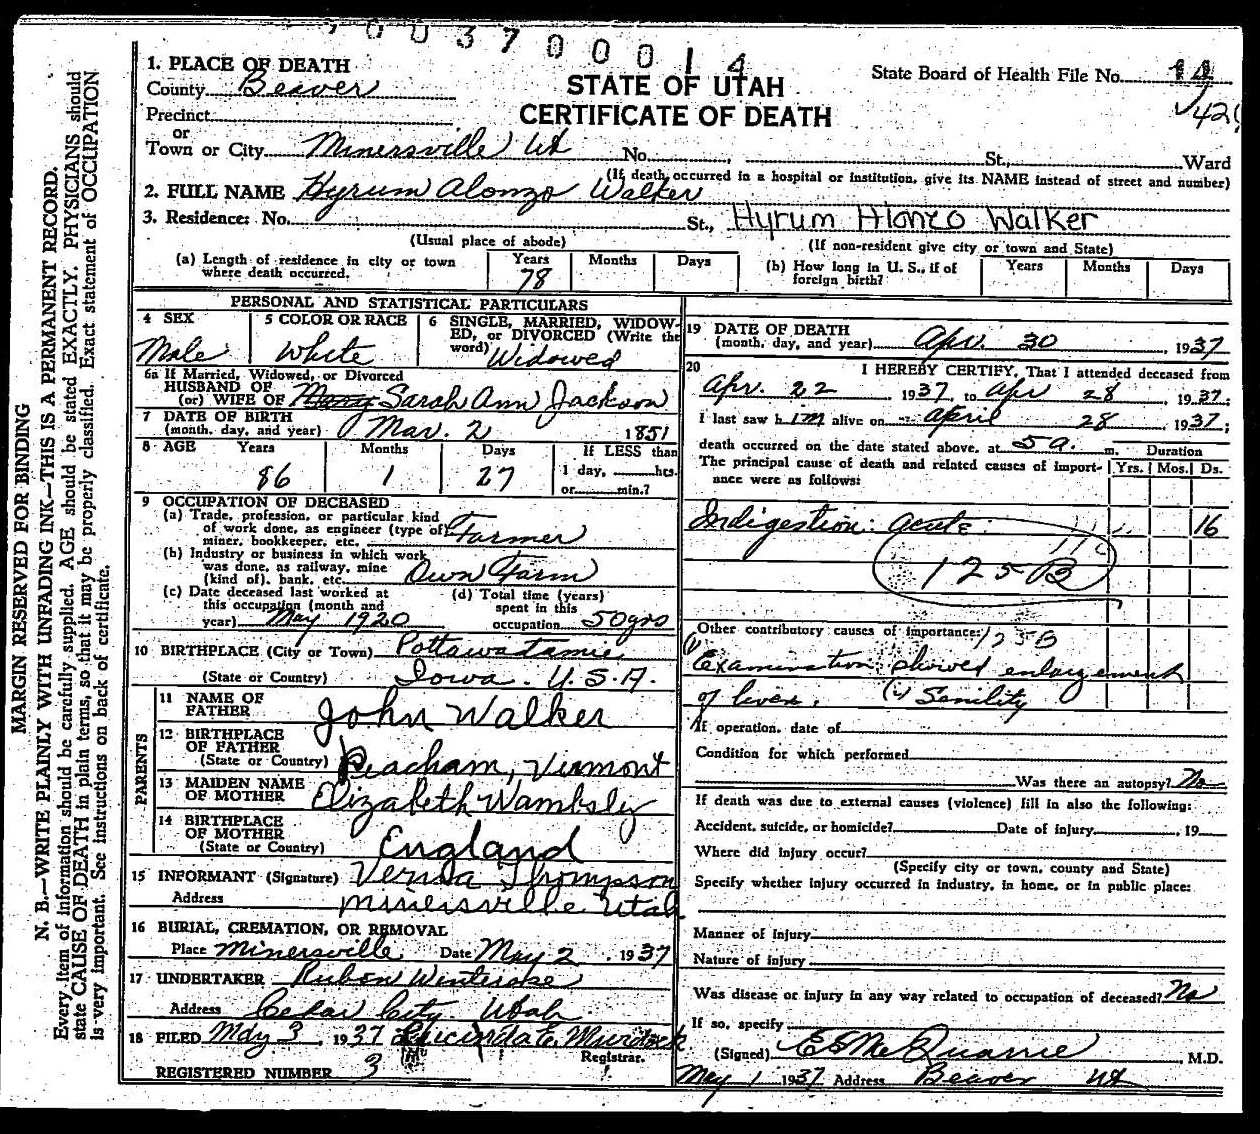 003700014
1. PLACE OF DEATH
County Beaver
STATE OF UTAH
CERTIFICATE OF DEATH
State Board of Health File No.
Precinct
or
Town or City Minersville Ut No. St., Ward
(If death occurred in a hospital or institution, give its NAME instead of street and number)
2. FULL NAME Hyrum Alonzo Walker
3. Residence: No. St., Hyrum Alonzo Walker
(Usual place of abode) (If non-resident give city or town and State)
(a) Length of residence in city or town where death occurred. Years 78 Months Days
(b) How long in U. S., if of foreign birth? Years Months Days
PERSONAL AND STATISTICAL PARTICULARS
4 SEX Male
5 COLOR OR RACE White
6 SINGLE, MARRIED, WIDOW-
ED, or DIVORCED (Write the
word) Widowed
6a If Married, Widowed, or Divorced
HUSBAND OF
(or) WIFE OF Mary Sarah Ann Jackson
7 DATE OF BIRTH
(month, day, and year) Mar. 2 1851
8 AGE Years 86 Months 1 Days 27
If LESS than
1 day, hrs.
or min.?
9 OCCUPATION OF DECEASED
(a) Trade, profession, or particular kind
of work done, as engineer (type of)
miner, bookkeeper, etc. Farmer
(b) Industry or business in which work
was done, as railway, mine
(kind of), bank, etc. Own Farm
(c) Date deceased last worked at
this occupation (month and
year) May 1920
(d) Total time (years)
spent in this
occupation 50 yrs
10 BIRTHPLACE (City or Town) Pottawatamie
(State or Country) Iowa. U.S.A.
PARENTS
11 NAME OF
FATHER John Walker
12 BIRTHPLACE
OF FATHER
(State or Country) Peacham, Vermont
13 MAIDEN NAME
OF MOTHER Elizabeth Wambsly
14 BIRTHPLACE
OF MOTHER
(State or Country) England
15 INFORMANT (Signature) Verda Thompson
Address Minersville Utah
16 BURIAL, CREMATION, OR REMOVAL
Place Minersville Date May 2, 1937
17 UNDERTAKER Ruben Winterose
Address Cedar City. Utah.
18 FILED May 3, 1937 Lucinda E. Murdock
Registrar.
REGISTERED NUMBER 3
19 DATE OF DEATH
(month, day, and year) Apr. 30, 1937
20 I HEREBY CERTIFY, That I attended deceased from
Apr. 22 1937, to Apr 28, 1937;
I last saw him alive on April 28, 1937;
death occurred on the date stated above, at 5 a. m.
Duration
The principal cause of death and related causes of import-
ance were as follows: Yrs. Mos. Ds.
Indigestion: acute. 16
125B
Other contributory causes of importance: 125B
(1) Examination showed enlargement
of liver. (2) Senility
If operation, date of
Condition for which performed
Was there an autopsy? No
If death was due to external causes (violence) fill in also the following:
Accident, suicide, or homicide? Date of injury , 19
Where did injury occur?
(Specify city or town, county and State)
Specify whether injury occurred in industry, in home, or in public place:
Manner of injury
Nature of injury
Was disease or injury in any way related to occupation of deceased? No
If so, specify
(Signed) E S McQuarrie M.D.
May 1 1937 Address Beaver Ut
MARGIN RESERVED FOR BINDING
N. B.—WRITE PLAINLY WITH UNFADING INK—THIS IS A PERMANENT RECORD.
Every item of information should be carefully supplied. AGE should be stated EXACTLY. PHYSICIANS should
state CAUSE OF DEATH in plain terms, so that it may be properly classified. Exact statement of OCCUPATION
is very important. See instructions on back of certificate.